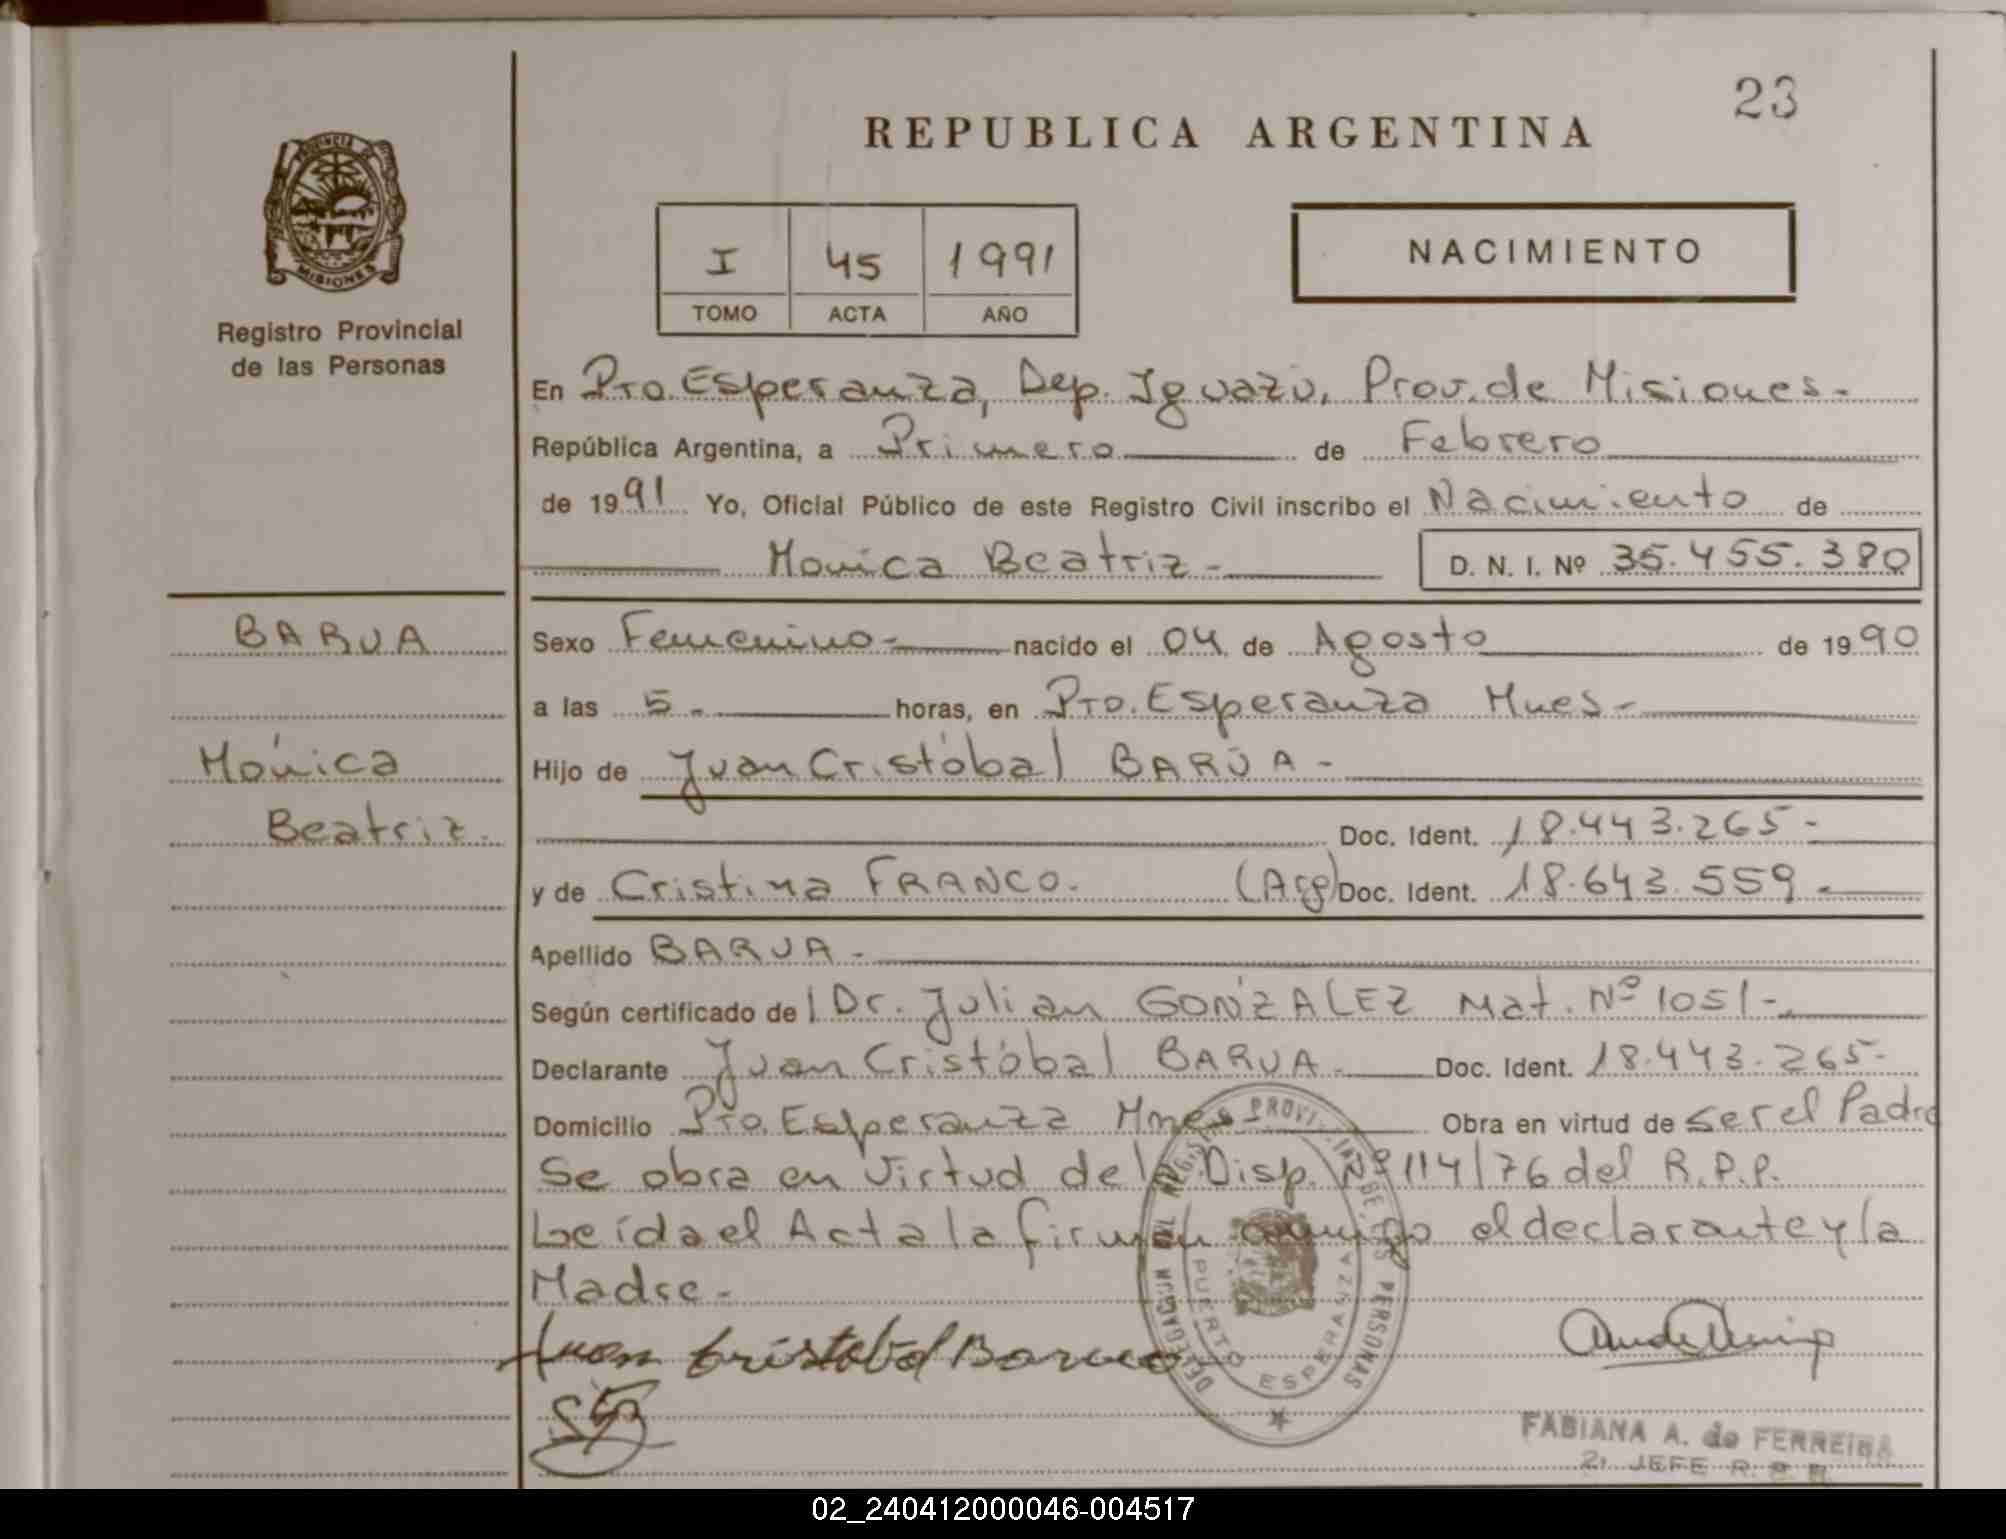 23
REPUBLICA ARGENTINA
PROVINCIA DE
MISIONES
Registro Provincial
de las Personas
I 45 1991
TOMO ACTA AÑO
NACIMIENTO
En Pto. Esperanza, Dep. Iguazú, Prov. de Misiones.-
República Argentina, a Primero de Febrero
de 1991 Yo, Oficial Público de este Registro Civil inscribo el Nacimiento de
Monica Beatriz - D. N. I. Nº 35.455.380
BARUA
Mónica
Beatriz.
Sexo Femenino- nacido el 04 de Agosto de 1990
a las 5.- horas, en Pto. Esperanza Mnes-
Hijo de Juan Cristóbal BARÚA -
Doc. Ident. 18.443.265-
y de Cristina FRANCO. (Arg) Doc. Ident. 18.643.559-
Apellido BARUA -
Según certificado de l Dr. Julian GONZALEZ Mat. Nº 1051-
Declarante Juan Cristóbal BARUA - Doc. Ident. 18.443.265-
Domicilio Pto. Esperanza Mnes Obra en virtud de ser el Padre
Se obra en Virtud de la Disp. Nº 114/76 del R.P.P.
Leída el Acta la firman conmigo el declarante y la
Madre.-
Juan Cristobal Barua
DELEGACION DEL REGISTRO PROVINCIAL DE LAS PERSONAS
PUERTO ESPERANZA
FABIANA A. de FERREIRA
JEFE R.
02_240412000046-004517